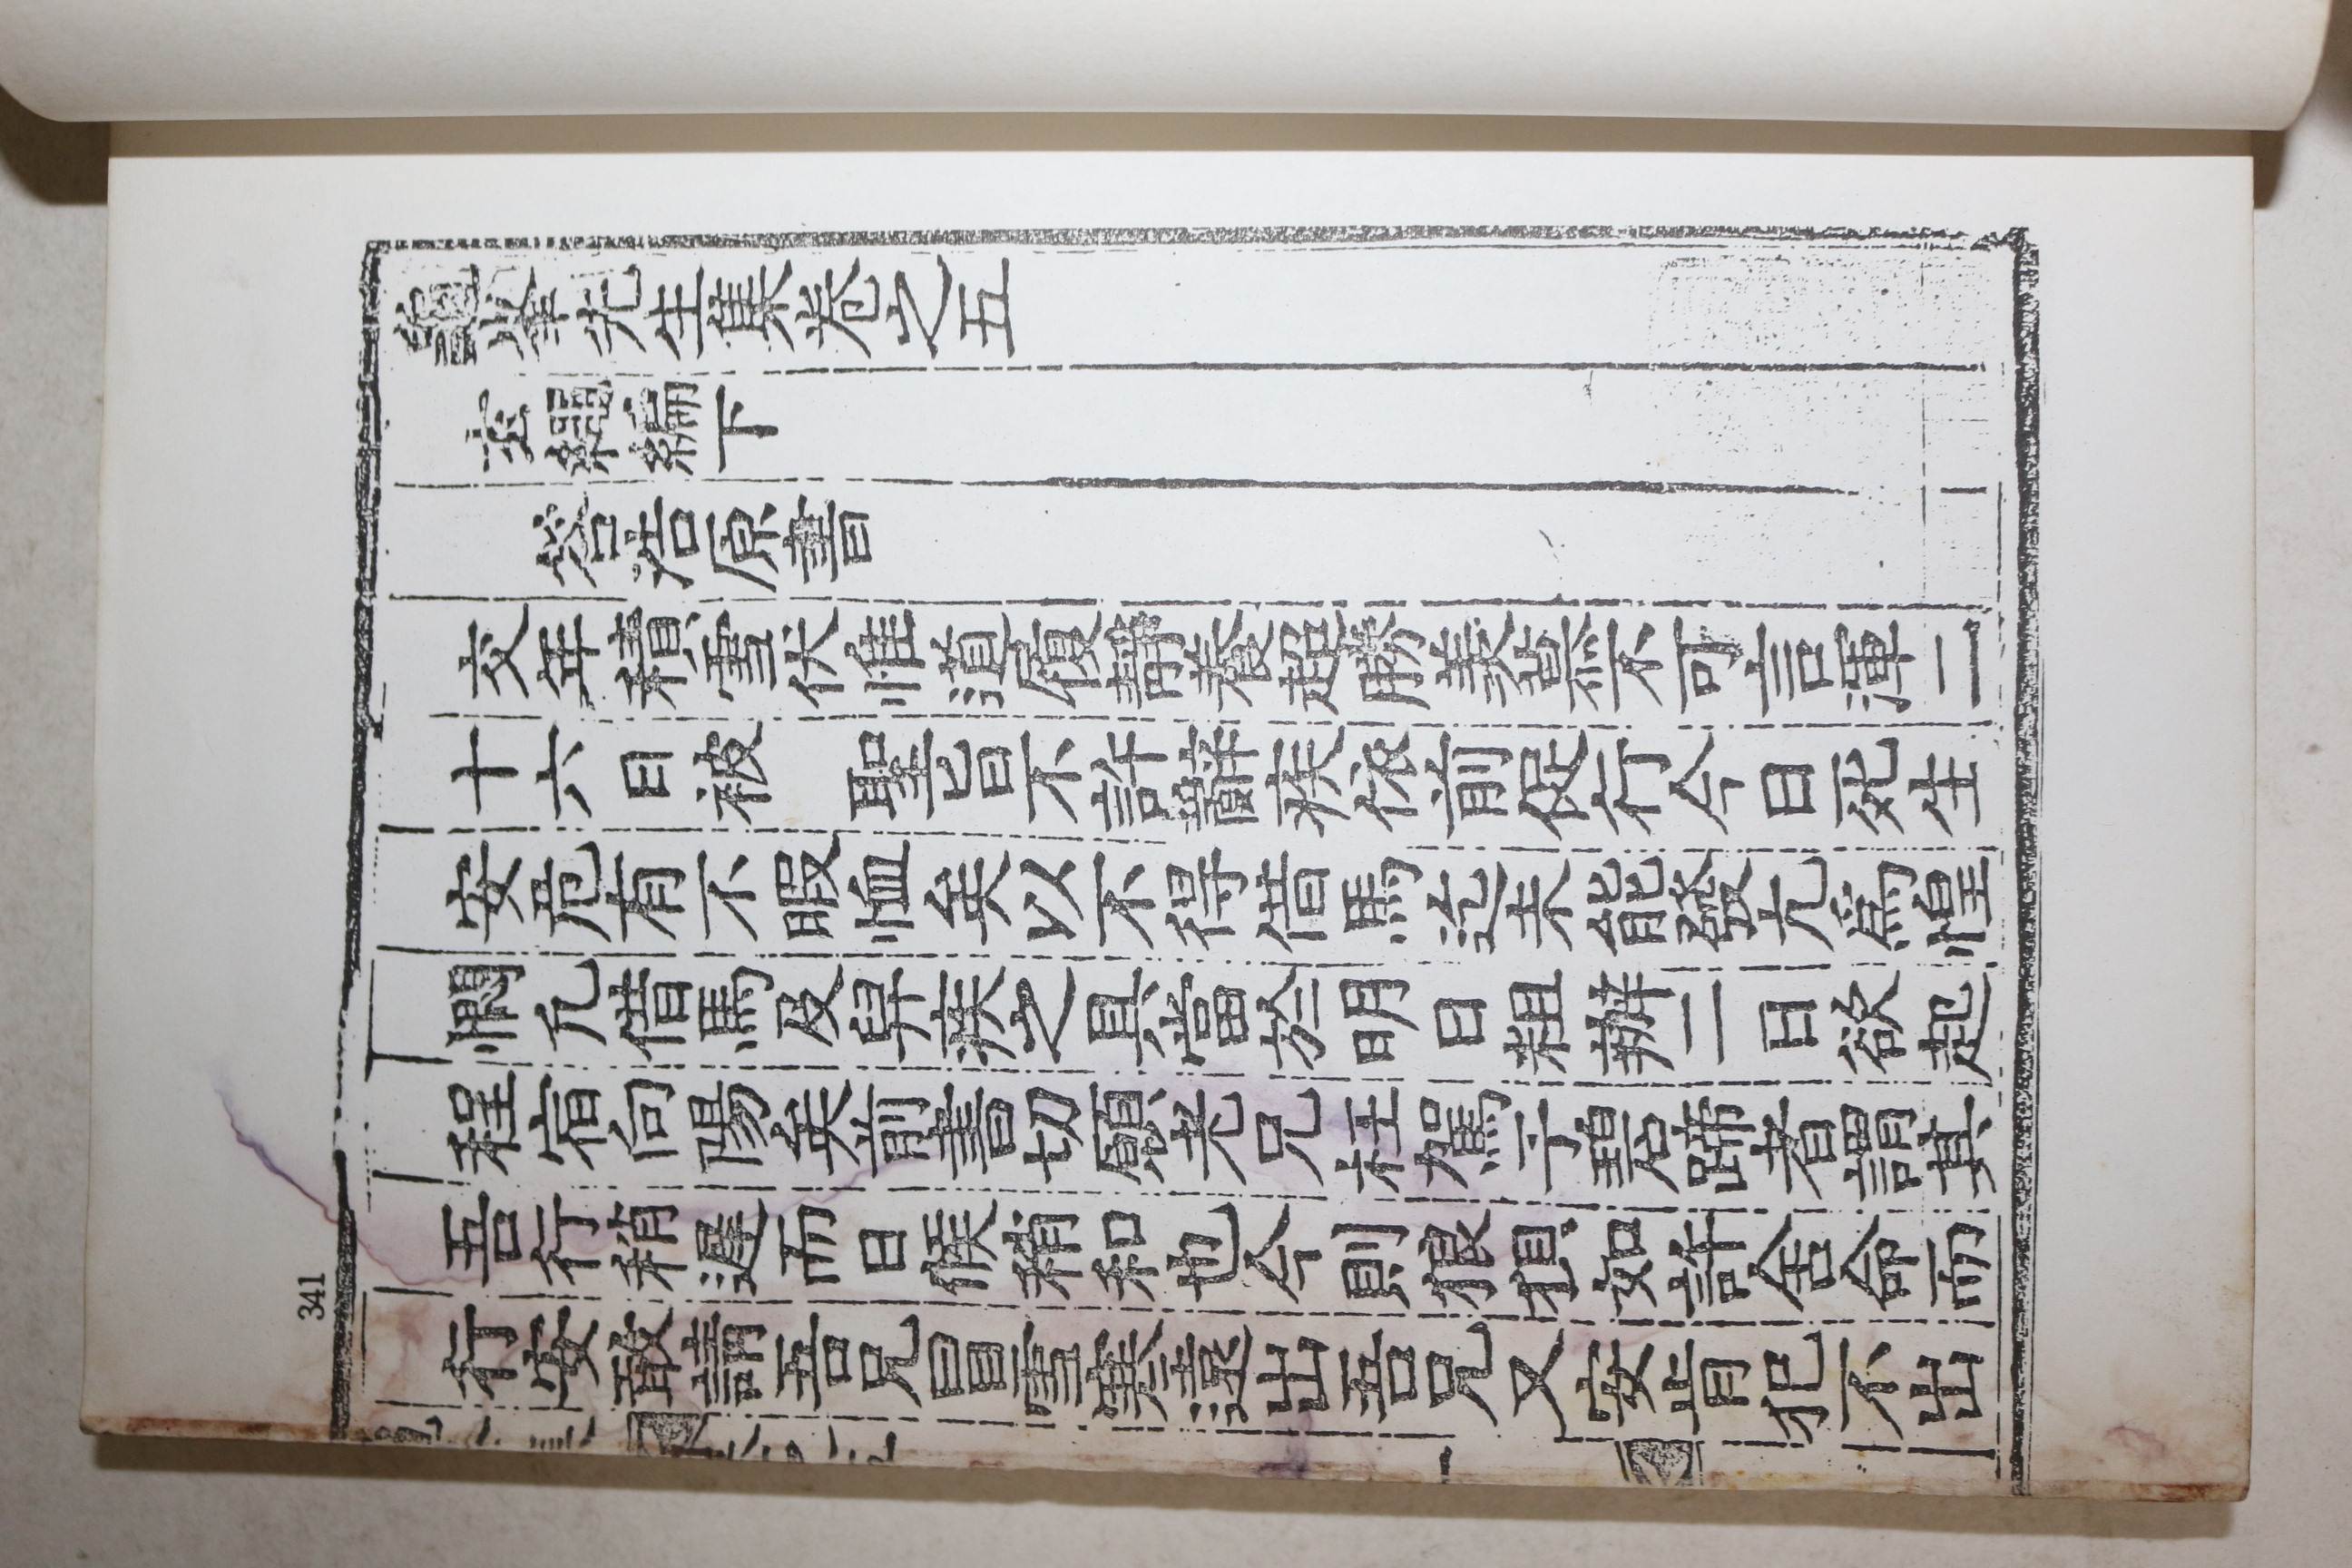 341
龜峯先生集卷之五
玄繩編下
答浩原書
交年積雪伏惟道履靜養超勝羨慕不可言渾二
十六日被 聖旨不許辭疾依前促行今日死生
安危有不暇恤矣以不得借馬迄未能發尤爲惶
憫允借馬及舁疾之具當於明日粗辦二日欲起
程宿向陽矣前書切願老兄枉駕于碧蹄者謂其
吾行稍遲而日候稍和也今則狼狽如許舍命而
行安敢請吾兄冒雪寒遠出吾兄又安肯犯不出